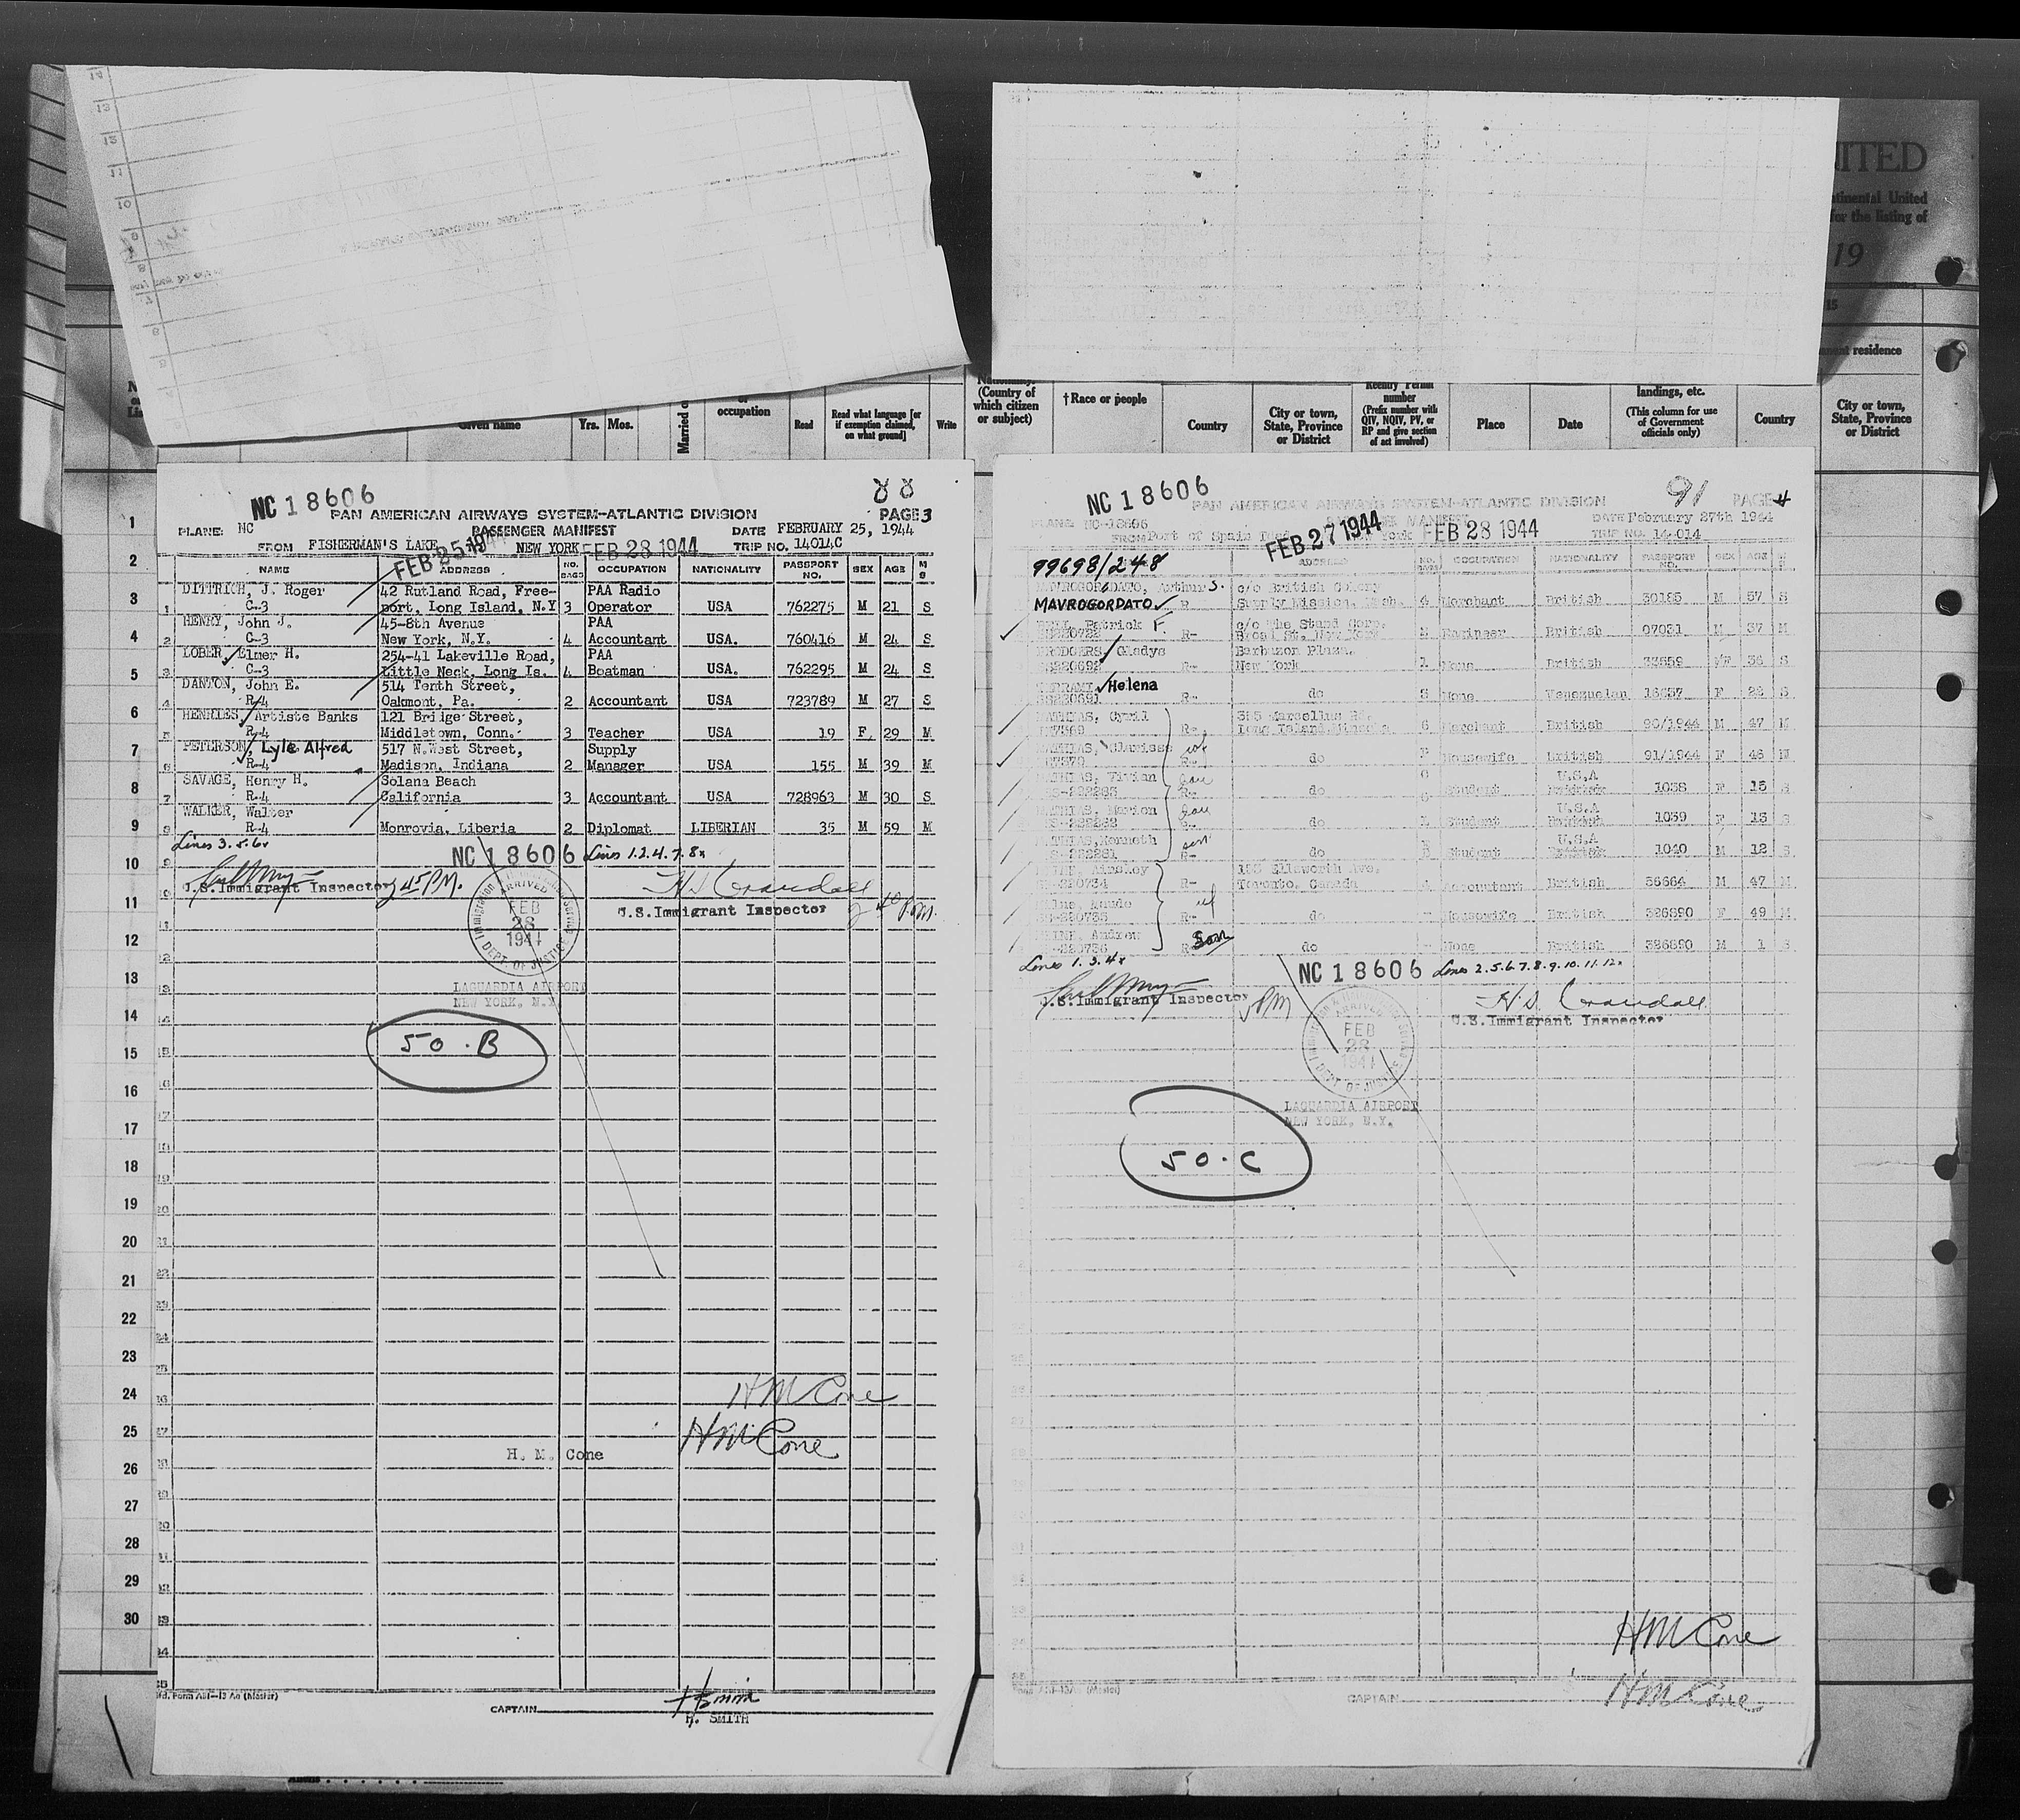 UNITED
Continental United
for the listing of
19
15
permanent residence
Given name
Yrs. Mos.
Married o
occupation
Read
Read what language [or
if exemption claimed,
on what ground]
Write
Nationality.
(Country of
which citizen
or subject)
†Race or people
Country
City or town,
State, Province
or District
Reentry Permit
number
(Prefix number with
QIV, NQIV, PV, or
RP and give section
of act involved)
Place
Date
landings, etc.
(This column for use
of Government
officials only)
Country
City or town,
State, Province
or District
NC 18606
88
PAN AMERICAN AIRWAYS SYSTEM-ATLANTIC DIVISION PAGE 3
PLANE: NC PASSENGER MANIFEST DATE FEBRUARY 25, 1944
FROM FISHERMAN'S LAKE FEB 25 1944 NEW YORK FEB 28 1944 TRIP NO. 14014C
NAME ADDRESS NO. BAGS OCCUPATION NATIONALITY PASSPORT NO. SEX AGE M S
DITTRICH, J. Roger 42 Rutland Road, Free- PAA Radio
1 C-3 port, Long Island, N.Y 3 Operator USA 762275 M 21 S
HENRY, John J. 45-8th Avenue PAA
2 C-3 New York, N.Y. 4 Accountant USA. 760416 M 24 S
LOBER, Elmer H. 254-41 Lakeville Road, PAA
3 C-3 Little Neck, Long Is. 4 Boatman USA. 762295 M 24 S
DANTON, John E. 514 Tenth Street,
4 R-4 Oakmont, Pa. 2 Accountant USA 723789 M 27 S
HENRIES, Artiste Banks 121 Bridge Street,
5 R-4 Middletown, Conn. 3 Teacher USA 19 F 29 M
PETERSON, Lyle Alfred 517 N.West Street, Supply
6 R-4 Madison, Indiana 2 Manager USA 155 M 39 M
SAVAGE, Henry H. Solana Beach
7 R-4 California 3 Accountant USA 728963 M 30 S
WALKER, Walter
8 R-4 Monrovia, Liberia 2 Diplomat LIBERIAN 35 M 59 M
Lines 3.5.6x NC 18606 Lines 1.2.4.7.8x
U.S.Immigrant Inspector 2 45 PM.
H S Crandall
U.S.Immigrant Inspector 2 40 P.M.
ARRIVED
FEB
28
1944
DEPT. OF JUSTICE
LAGUARDIA AIRPORT
NEW YORK, N.Y.
50.B
HM Cone
HM Cone
H. M. Cone
Form ASI-13 Aa (Master)
CAPTAIN H Smith
H. SMITH
1
2
3
4
5
6
7
8
9
10
11
12
13
14
15
16
17
18
19
20
21
22
23
24
25
26
27
28
29
30
NC 18606
91
PAN AMERICAN AIRWAYS SYSTEM-ATLANTIC DIVISION PAGE 4
PLANE: NC-18606 MANIFEST DATE February 27th 1944
FROM Port of Spain FEB 27 1944 York FEB 28 1944 TRIP NO. 14-014
99698/248 ADDRESS OCCUPATION NATIONALITY PASSPORT NO. SEX AGE
MAVROGORDATO, Arthur S. c/o British Colony
MAVROGORDATO R- Supply Mission, Wash. 4 Merchant British 30185 M 57 S
Patrick F. c/o The Stand Corp.
R- Broad St. New York Engineer British 07031 M 37 M
Gladys Barbazon Plaza,
R- New York 1 None British F 36 S
Helena
R- do None Venezuelan F 22 S
MATHIAS, Cyril
R- Merchant British 90/1944 M 47 M
MATHIAS, Clarisse wf
R- do Housewife British 91/1944 F 46 M
MATHIAS, Vivian dau U.S.A
R- do Student British 1038 F 15 S
MATHIAS, Marion dau U.S.A
do Student British 1039 F 13 S
MATHIAS, Kenneth son U.S.A
R- do Student British 1040 M 12 S
Ainsley Ellsworth Ave.
R- Toronto, Canada Accountant British 36664 M 47 M
Maude wf
R- do Housewife British 326890 F 49 M
Andrew Son
do None British 326890 M 1 S
Lines 1.3.4x NC 18606 Lines 2.5.6.7.8.9.10.11.12x
U.S.Immigrant Inspector PM
H.S. Crandall
U.S.Immigrant Inspector
ARRIVED
FEB
28
1944
DEPT. OF JUSTICE
LAGUARDIA AIRPORT
NEW YORK, N.Y.
50.C
HM Cone
CAPTAIN HM Cone